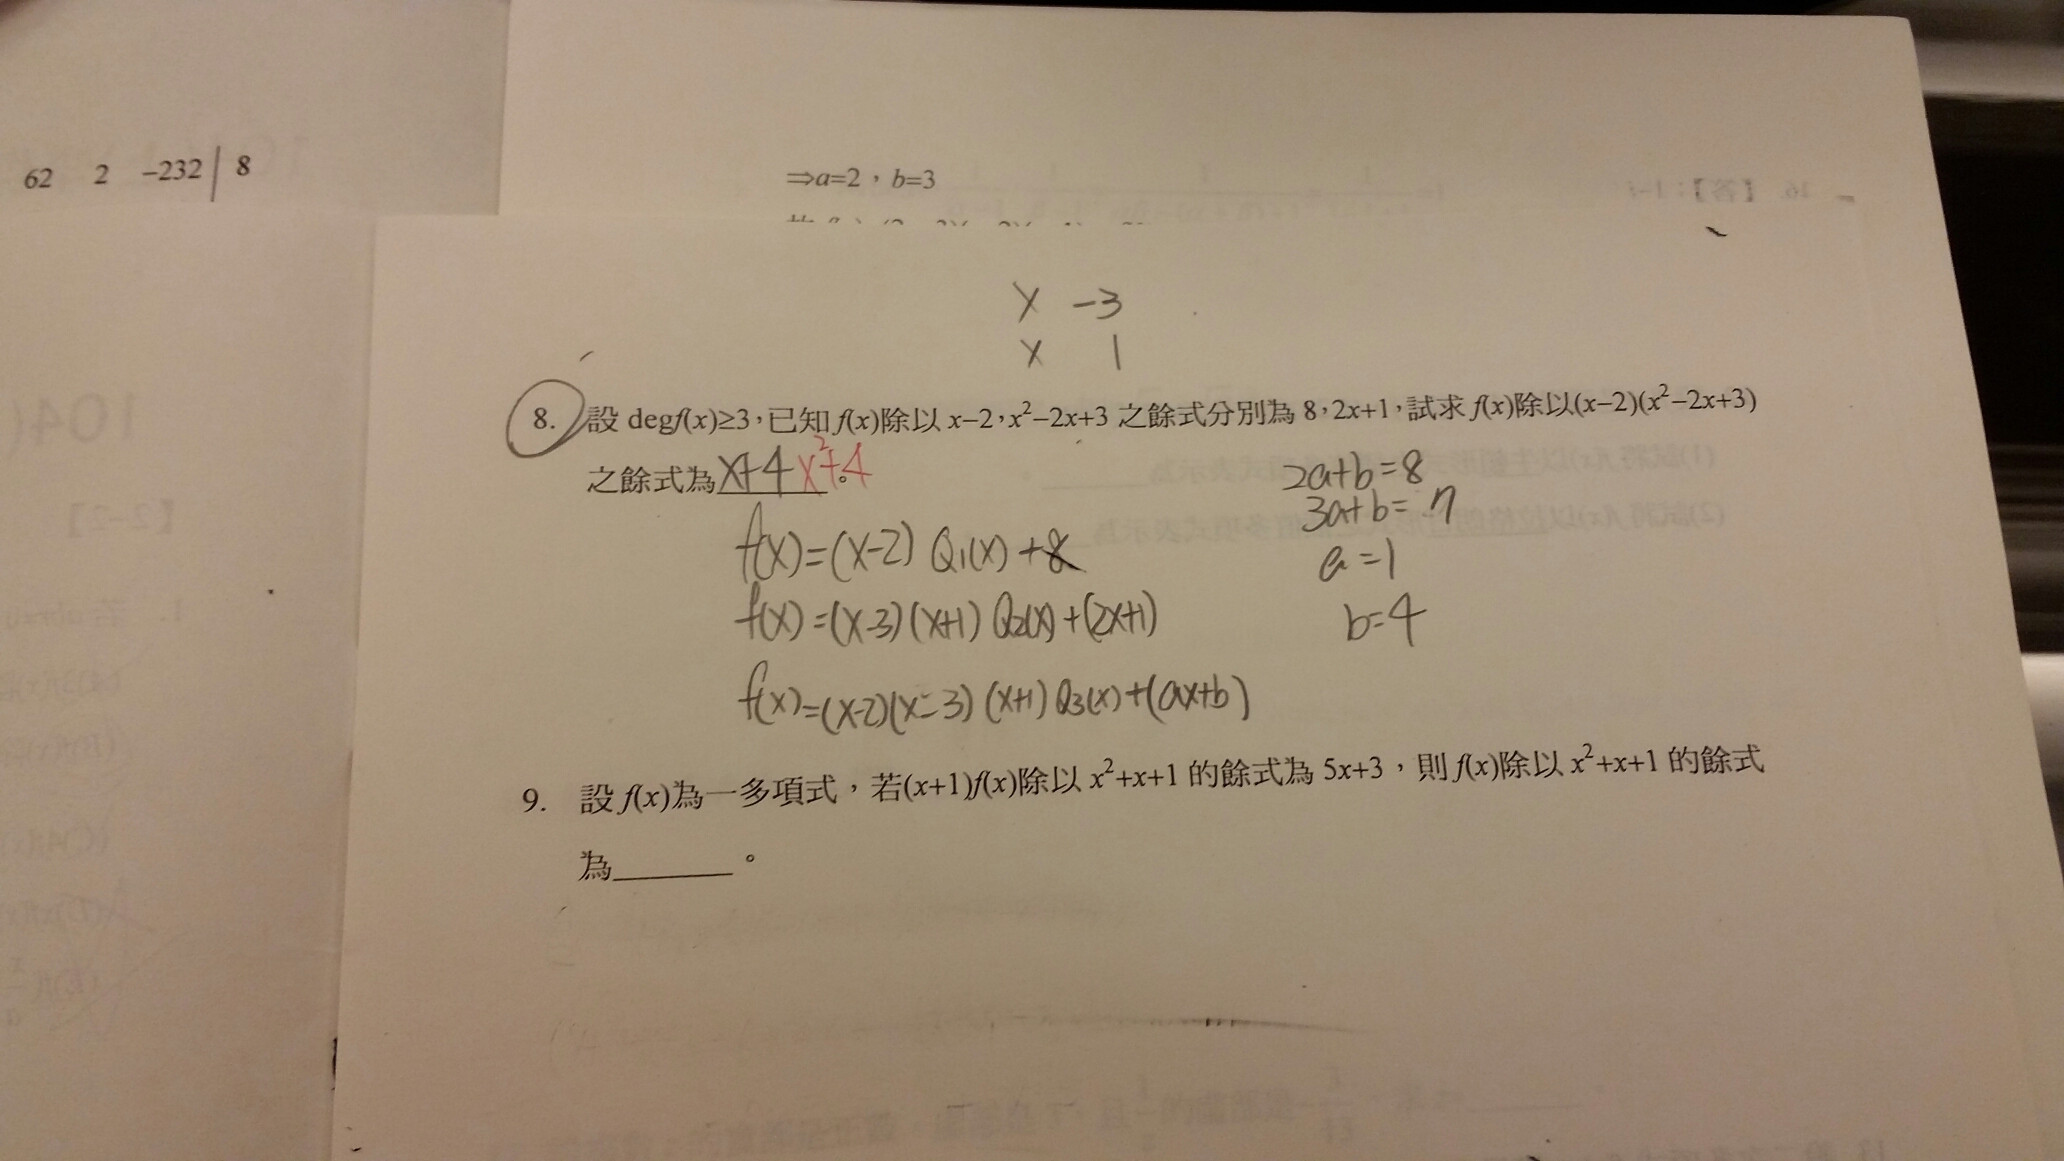 62 2 -232 8
⇒a=2，b=3
x -3
x 1
8. 設 degf(x)≥3，已知 f(x)除以 x-2，x²-2x+3 之餘式分別為 8，2x+1，試求 f(x)除以(x-2)(x²-2x+3)
之餘式為x+4 x²+4。
2a+b=8
3a+b=7
a=1
b=4
f(x)=(x-2) Q₁(x)+8
f(x)=(x-3)(x+1) Q₂(x)+(2x+1)
f(x)=(x-2)(x-3)(x+1) Q₃(x)+(ax+b)
9. 設 f(x)為一多項式，若(x+1)f(x)除以 x²+x+1 的餘式為 5x+3，則 f(x)除以 x²+x+1 的餘式
為______。